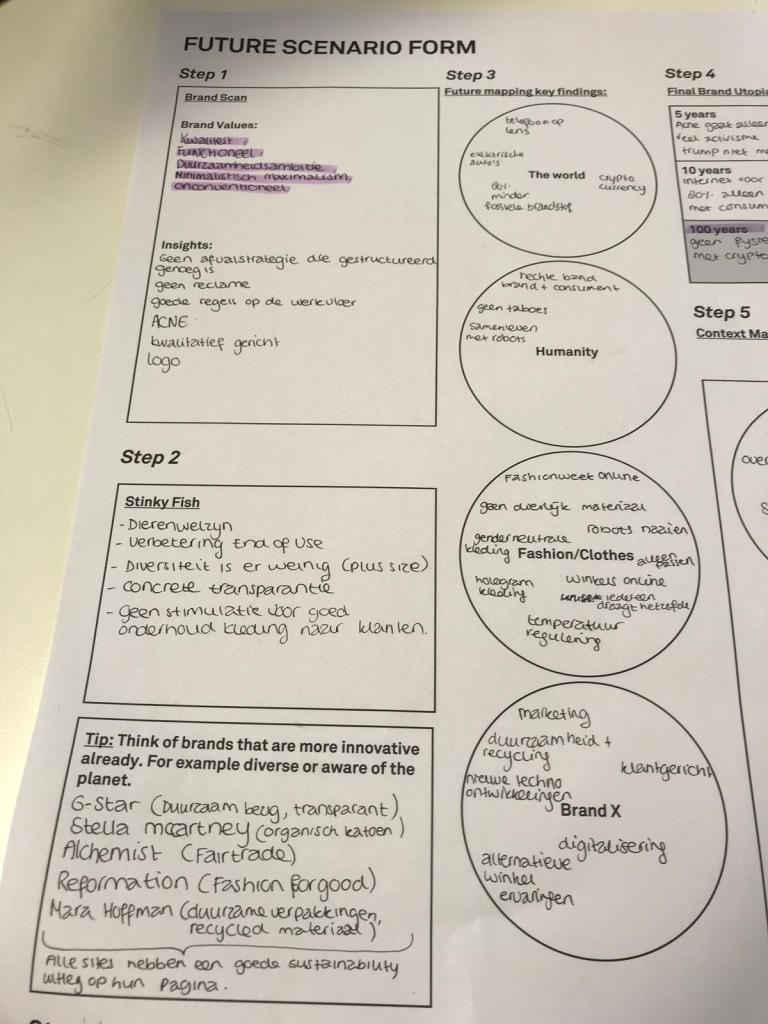 FUTURE SCENARIO FORM
Step 1
Brand Scan
Brand Values:
Kwaliteit
Functioneel
Duurzaamheidsambitie
Minimalistisch maximalism,
onconventioneel
Insights:
Geen afvalstrategie die gestructureerd
genoeg is
geen reclame
goede regels op de werkvloer
ACNE
kwalitatief gericht
logo
Step 2
Stinky Fish
- Dierenwelzijn
- Verbetering End of Use
- Diversiteit is er weinig (plus size)
- concrete transparantie
- Geen stimulatie voor goed
onderhoud kleding naar klanten.
Tip: Think of brands that are more innovative
already. For example diverse or aware of the
planet.
G-Star (Duurzaam bezig, transparant)
Stella mccartney (organisch katoen)
Alchemist (Fairtrade)
Reformation (Fashion for good)
Mara Hoffman (duurzame verpakkingen,
recycled materiaal)
Alle sites hebben een goede sustainability
uitleg op hun pagina.
Step 3
Future mapping key findings:
telefoon op
lens
elektrische
auto's
The world
crypto
currency
80%
minder
fossiele brandstof
hechte band
brand + consument
geen taboes
samenleven
met robots
Humanity
Fashionweek online
geen dierlijk materiaal
robots naaien
genderneutrale
kleding
Fashion/Clothes
passen
hologram
kleding
winkels online
iedereen
draagt hetzelfde
temperatuur
regulering
marketing
duurzaamheid +
recycling
klantgericht
nieuwe techno
ontwikkelingen
Brand X
digitalisering
alternatieve
winkel
ervaringen
Step 4
Final Brand Utopia
5 years
Acne gaat alleen
veel activisme
trump niet
10 years
internet voor
80% alleen
met consum
100 years
geen fysie
met crypto
Step 5
Context Ma
over